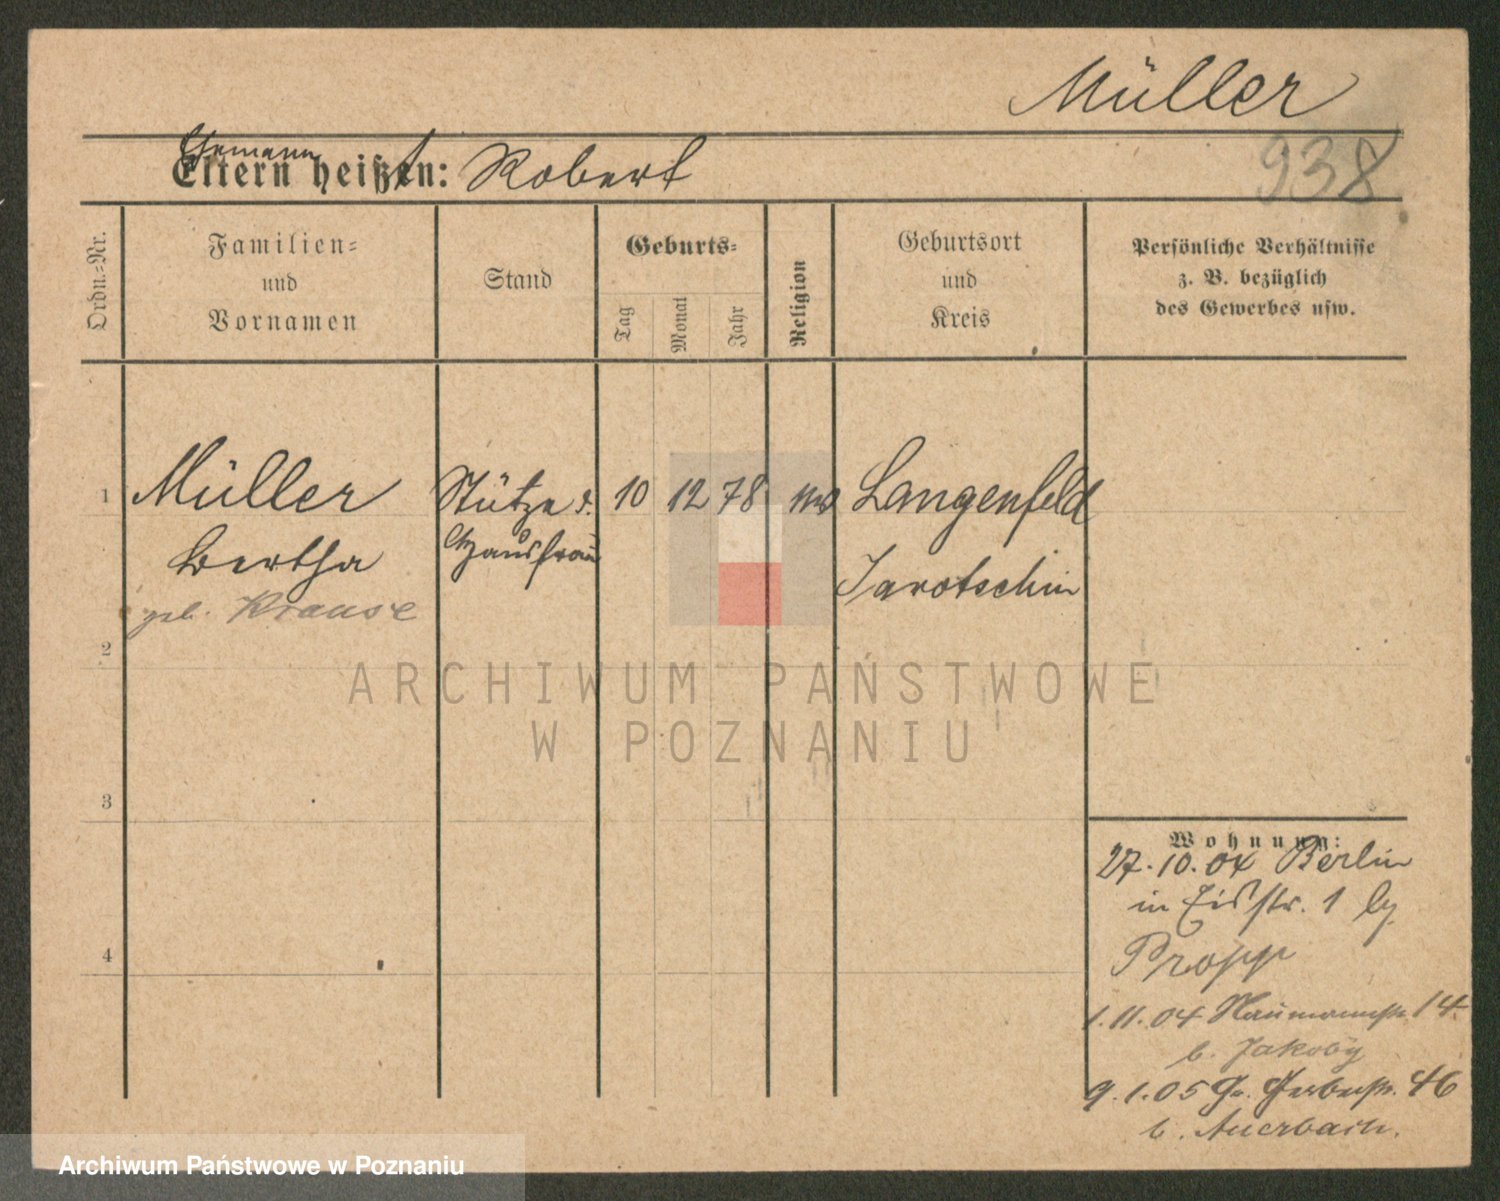 Müller
938
Ehemann
Eltern heißen: Robert
Ordn.=Nr.
Familien=
und
Vornamen
Stand
Geburts=
Tag
Monat
Jahr
Religion
Geburtsort
und
Kreis
Persönliche Verhältnisse
z. B. bezüglich
des Gewerbes usw.
1 Müller Stütze d. 10 12 78 Langenfeld
Bertha Hausfrau Jarotschin
geb. Krause
2
3
4
Wohnung:
27.10.04 Berlin
in 1
Propp
1.11.04 Naumannstr. 14
b. Jakoby
9.1.05 Gr. Gerberstr. 46
b. Auerbach.
ARCHIWUM PAŃSTWOWE
W POZNANIU
Archiwum Państwowe w Poznaniu